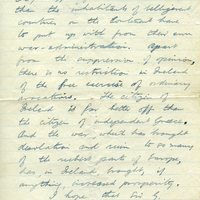 than the inhabitants of belligerent
countries on the Continent have
to put up with from their own
war-administration. Apart
from the suppression of opinion,
there is no restriction in Ireland
of the free exercise of ordinary
avocations. The citizen of
Ireland is far better off than
the citizen of independent Greece.
And the war, which has brought
desolation and ruin to so many
of the richest parts of Europe,
has, in Ireland, brought, if
anything, increased prosperity.
I hope that Sir G